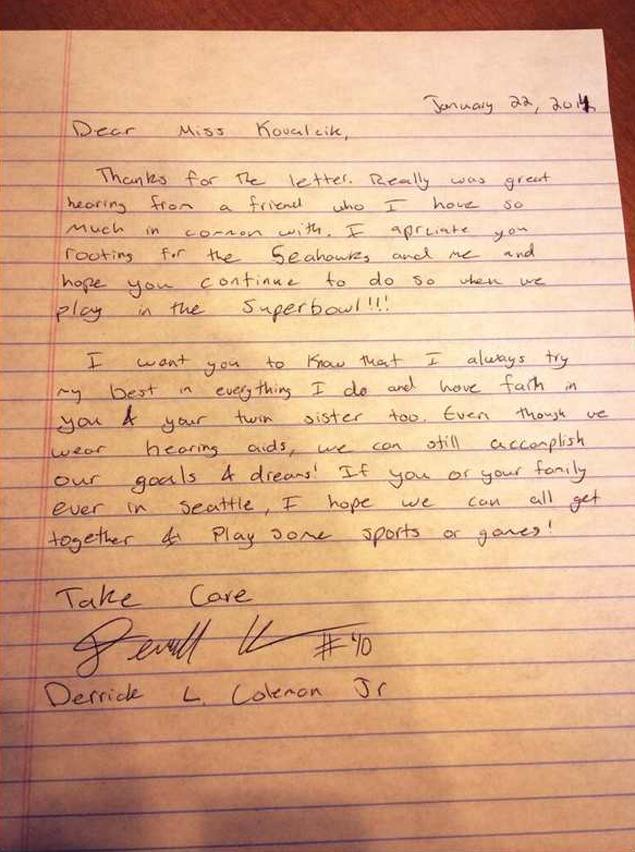 January 22, 2014
Dear Miss Kovalcik,
Thanks for the letter. Really was great
hearing from a friend who I have so
much in common with. I aprciate you
rooting for the Seahawks and me and
hope you continue to do so when we
play in the Superbowl!!!
I want you to know that I always try
my best in everything I do and have faith in
you & your twin sister too. Even though we
wear hearing aids, we can still accomplish
our goals & dreams! If you or your family
ever in seattle, I hope we can all get
together & Play some sports or games!
Take Care
#40
Derrick L. Coleman Jr